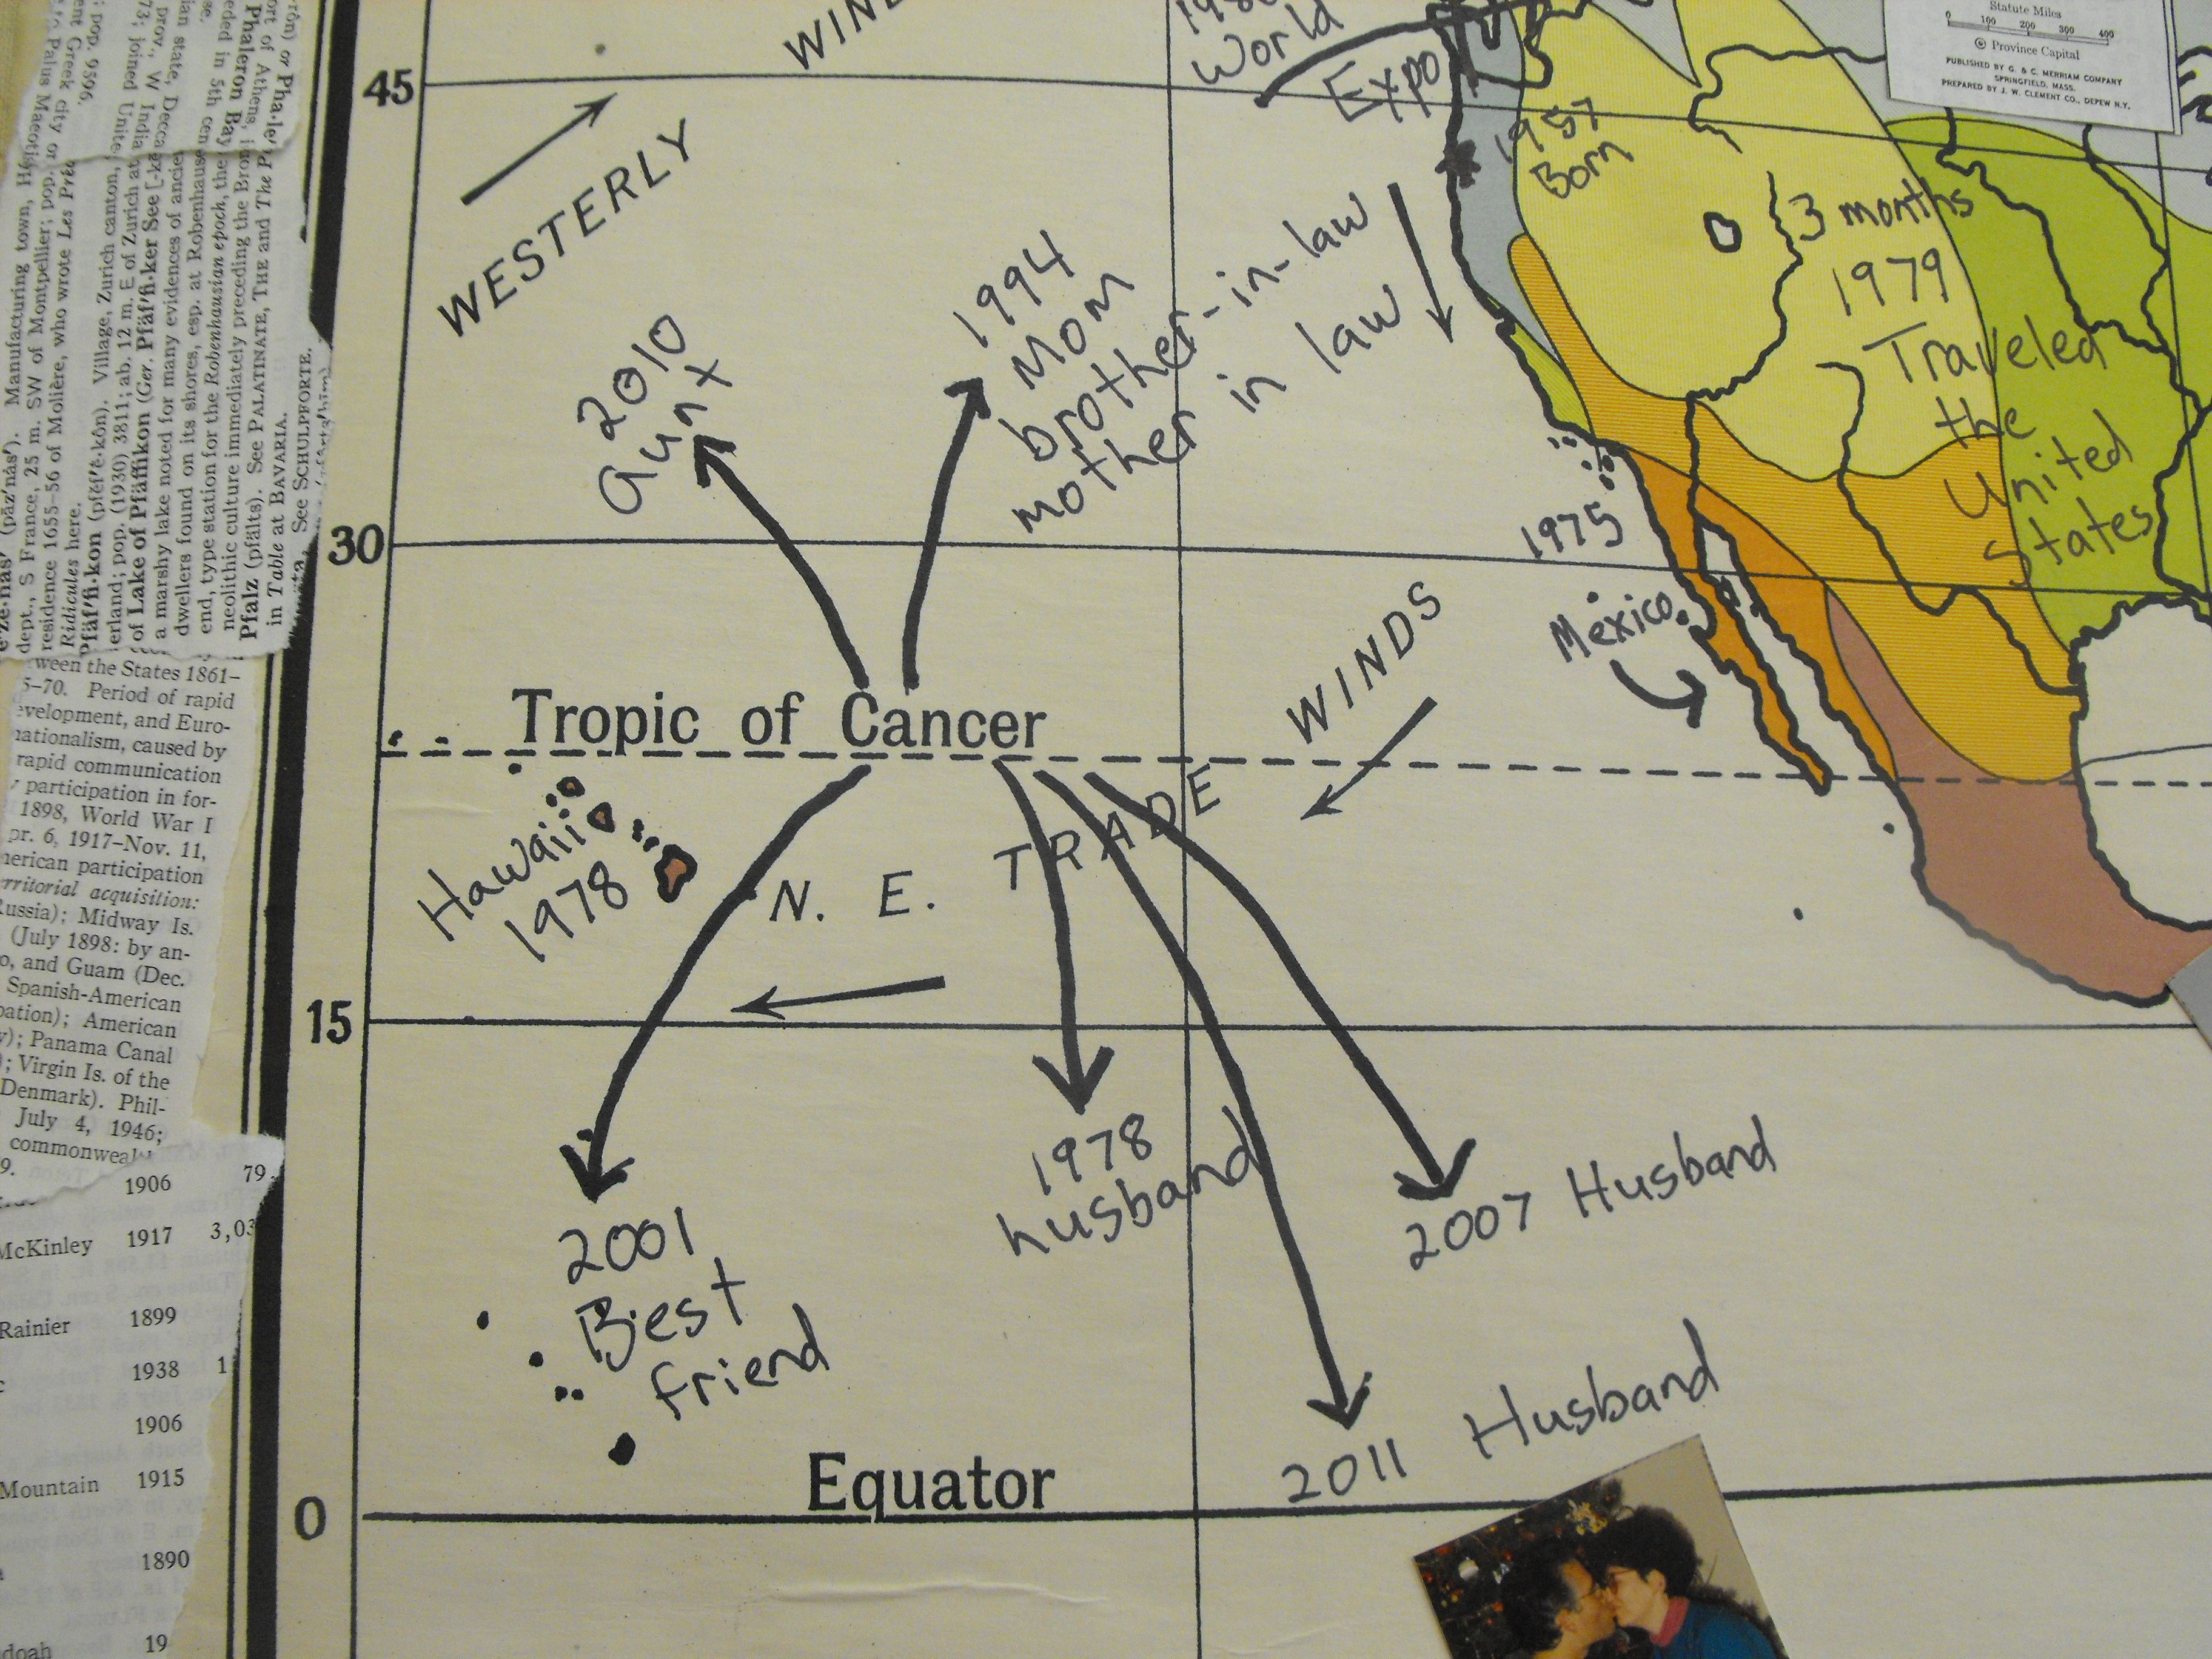 rôn) or Pha·le′r
ort of Athens,
Phaleron Bay
eded in 5th cen
se.
ian state, Decca
prov., W India
73; joined Unite
: pop. 9596.
ent Greek city or
Palus Maeotis
(päz′näs′). Manufacturing town,
dept., S France, 25 m. SW of Montpellier; pop.
residence 1655–56 of Molière, who wrote Les Pré
Ridicules here.
Pfäf′fi·kon (pfĕf′ē·kôn). Village, Zurich canton,
erland; pop. (1930) 3811; ab. 12 m. E of Zurich at
of Lake of Pfäffikon (Ger. Pfäf′fi·ker See
a marshy lake noted for many evidences of ancie
dwellers found on its shores, esp. at Robenhausen
end, type station for the Robenhausian epoch, the
neolithic culture immediately preceding the Bro
Pfalz (pfälts). See PALATINATE, THE and The P
in Table at BAVARIA.
See SCHULPFORTE.
ween the States 1861–
5–70. Period of rapid
evelopment, and Euro-
nationalism, caused by
rapid communication
participation in for-
1898, World War I
pr. 6, 1917–Nov. 11,
merican participation
erritorial acquisition:
Russia); Midway Is.
(July 1898: by an-
o, and Guam (Dec.
Spanish-American
pation); American
); Panama Canal
); Virgin Is. of the
Denmark). Phil-
July 4, 1946;
commonweal
9.
1906 79
McKinley 1917 3,03
1899
Rainier
1938 1
1906
Mountain 1915
1890
doah 19
45
30
15
0
WIN
WESTERLY
World
Expo
1957
Born
Statute Miles
0 100 200 300 400
Province Capital
PUBLISHED BY G. & C. MERRIAM COMPANY
SPRINGFIELD, MASS.
PREPARED BY J. W. CLEMENT CO., DEPEW N.Y.
3 months
1979
Traveled
the
United
States
2010
aunt
1994
Mom
brother-in-law
mother in law
1975
Mexico
Tropic of Cancer
WINDS
N. E. TRADE
Hawaii
1978
2001
Best
friend
1978
husband
2007 Husband
2011 Husband
Equator